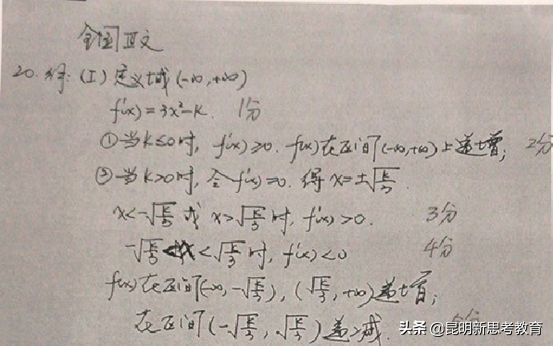 全国Ⅲ文
20. 解: (I) 定义域 (-∞, +∞)
f'(x) = 3x²-k. 1分
①当k≤0时, f'(x)≥0. f(x)在区间(-∞,+∞)上递增; 2分
②当k>0时, 令f'(x)=0. 得 x=±√(k/3)
x<-√(k/3) 或 x>√(k/3) 时, f'(x)>0. 3分
-√(k/3)<x<√(k/3) 时, f'(x)<0 4分
f(x)在区间(-∞, -√(k/3)), (√(k/3), +∞) 递增;
在区间(-√(k/3), √(k/3)) 递减.
头条 @昆明新思考教育